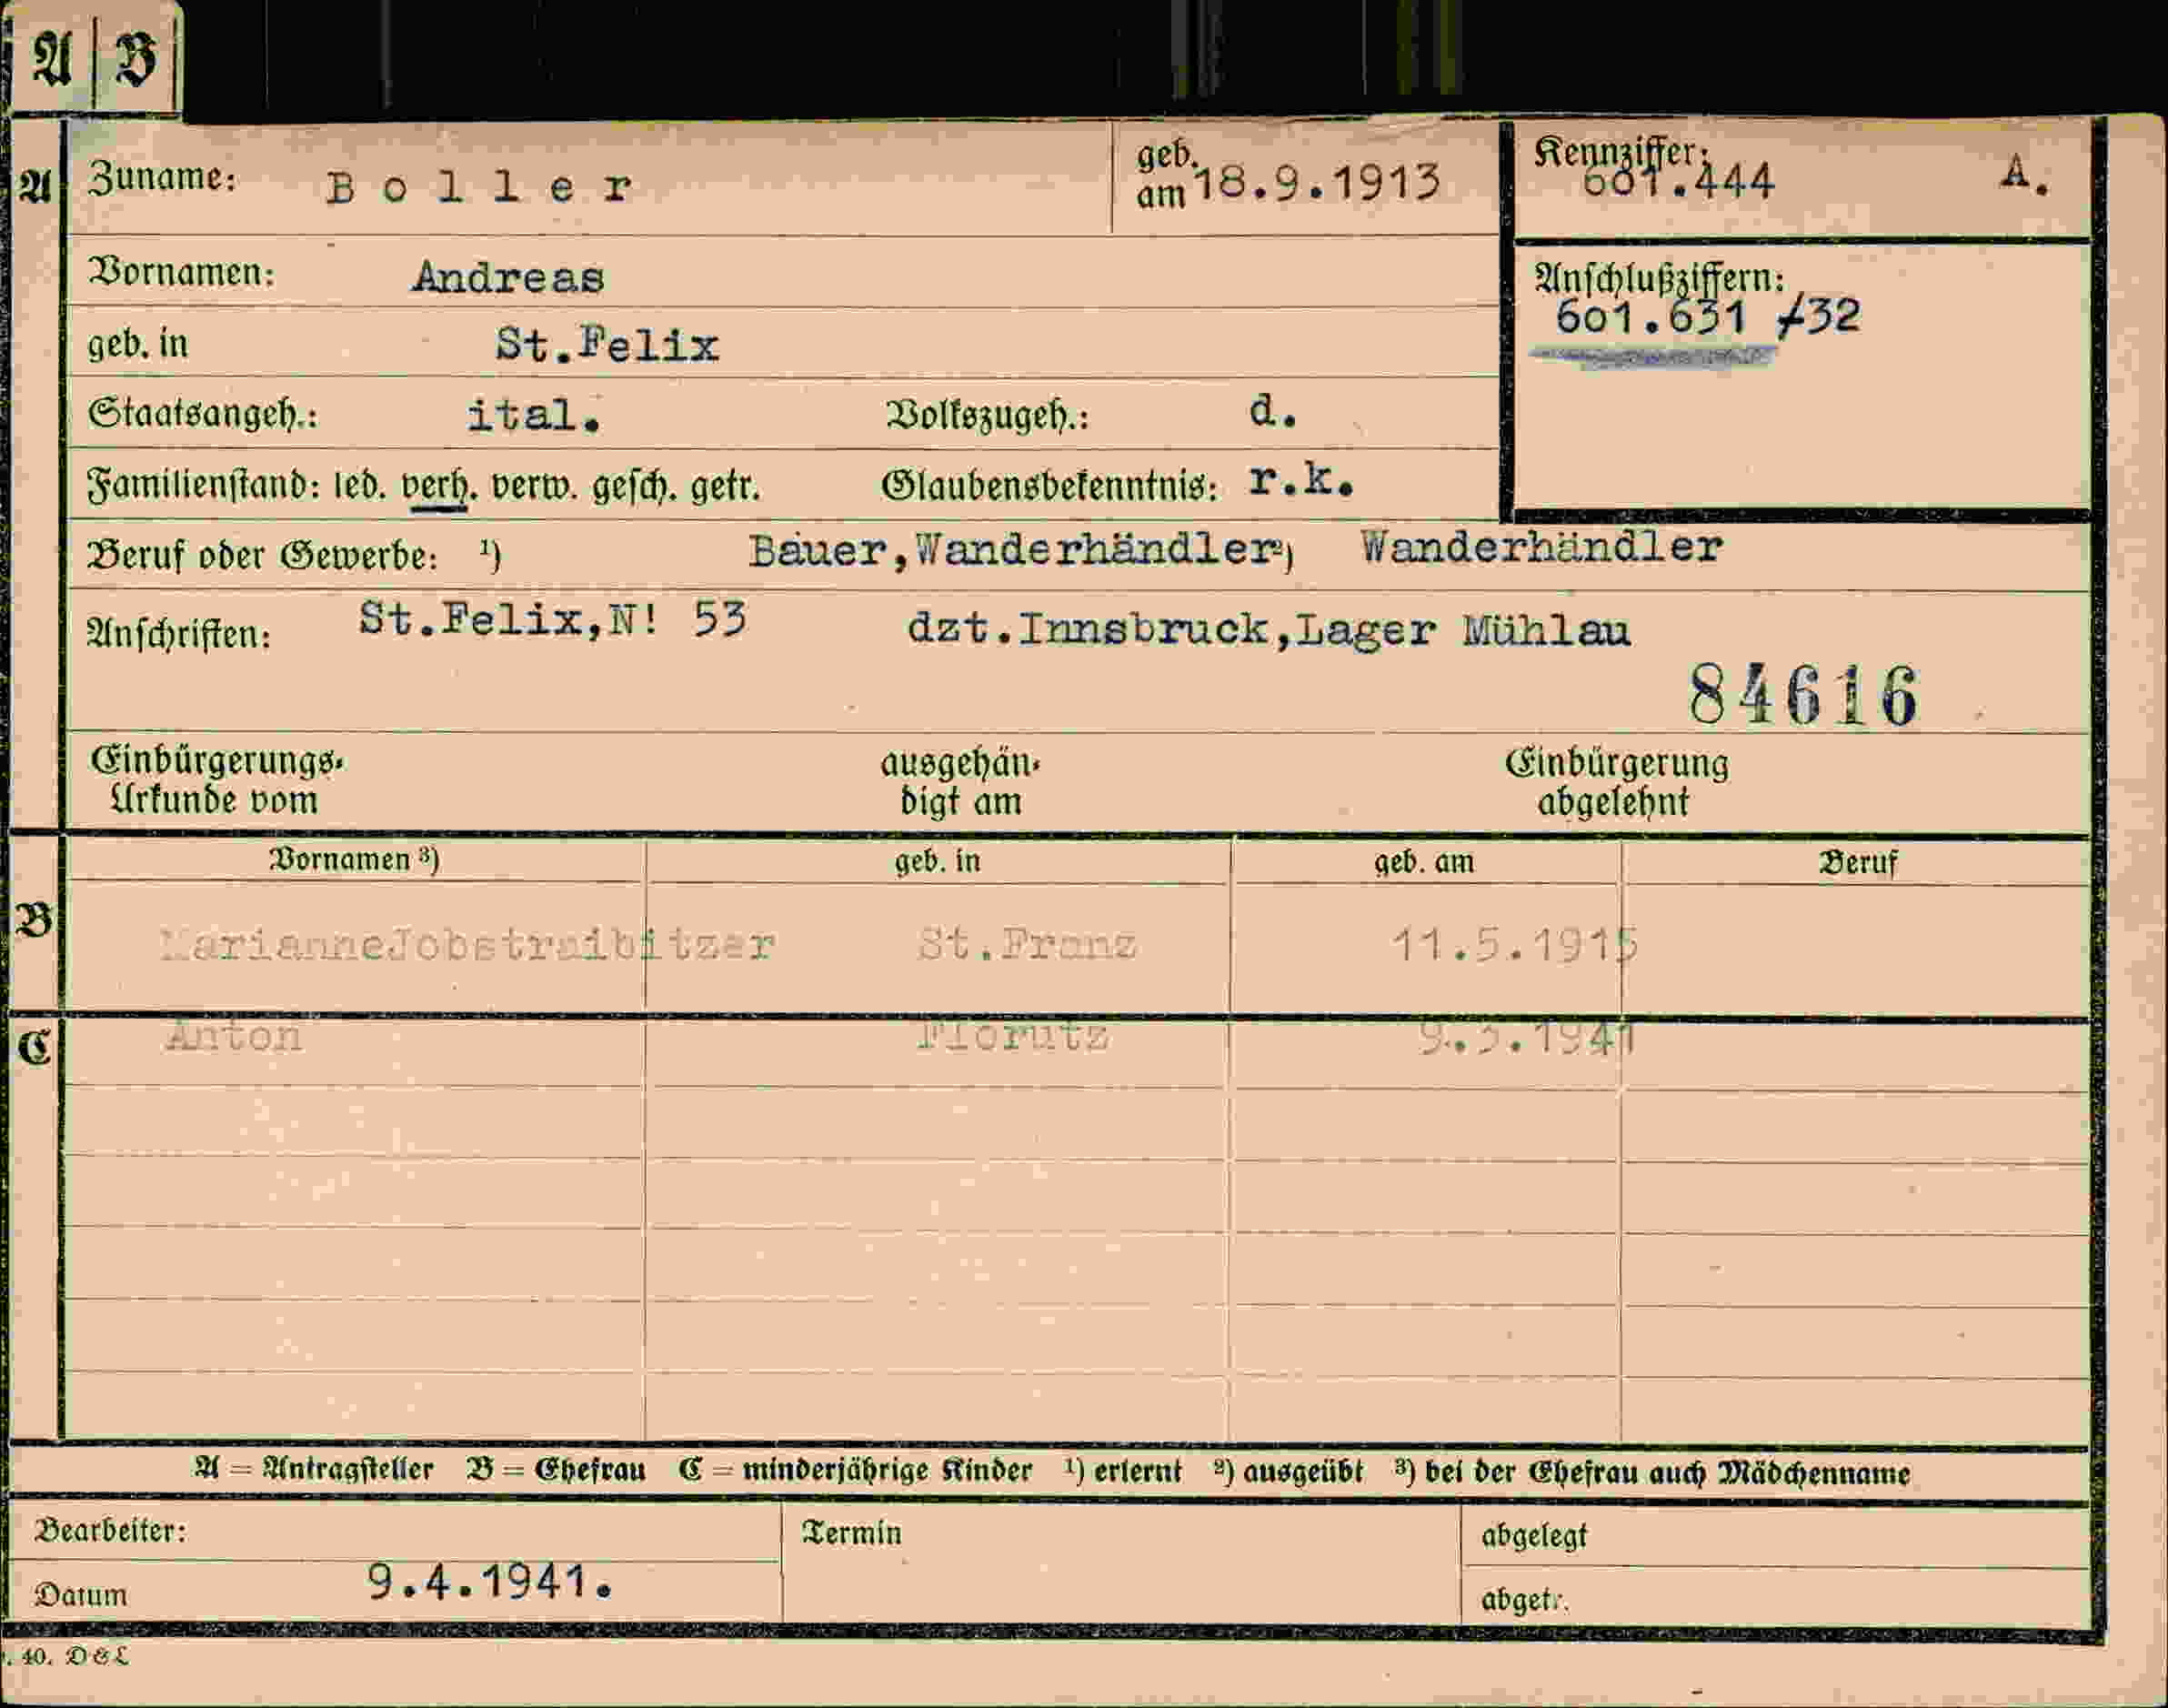 A B
A Zuname: Boller geb. am 18.9.1913 Kennziffer: 601.444 A.
Vornamen: Andreas Anschlußziffern:
geb. in St.Felix 601.631 /32
Staatsangeh.: ital. Volkszugeh.: d.
Familienstand: led. verh. verw. gesch. getr. Glaubensbekenntnis: r.k.
Beruf oder Gewerbe: ¹) Bauer,Wanderhändler ²) Wanderhändler
Anschriften: St.Felix,N! 53 dzt.Innsbruck,Lager Mühlau
84616
Einbürgerungs- ausgehän- Einbürgerung
Urkunde vom digt am abgelehnt
Vornamen ³) geb. in geb. am Beruf
B Marianne St.Franz 11.5.1915
C Anton 1941
A = Antragsteller B = Ehefrau C = minderjährige Kinder ¹) erlernt ²) ausgeübt ³) bei der Ehefrau auch Mädchenname
Bearbeiter: Termin abgelegt
Datum 9.4.1941. abgetr.
40. D & L